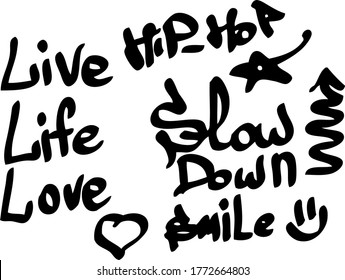 Live
Life
Love
HiP-HoP
Slow
Down
Smile
shutterstock.com · 1772664803